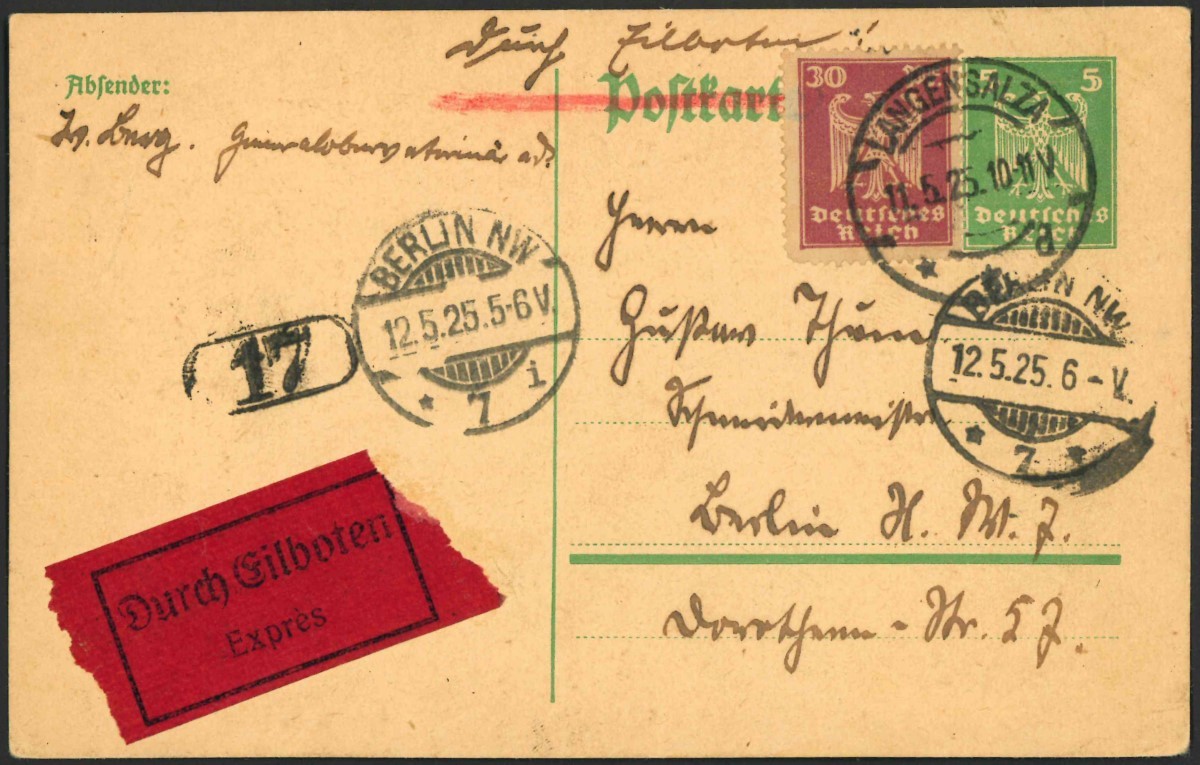 Durch Eilboten!
Absender:
Postkart
Berg. Generaloberveterinär a.d.
30
5 5
Deutsches
Reich
Deutsches
Reich
LANGENSALZA
11.5.25.10-11V.
* *
BERLIN NW
12.5.25.5-6V.
* 7 i
17
BERLIN NW
12.5.25.6-V.
* 7 *
Herrn
Gustav
Schneidermeister
Berlin N. W. 7.
Dorotheen-Str. 57.
Durch Eilboten
Exprès